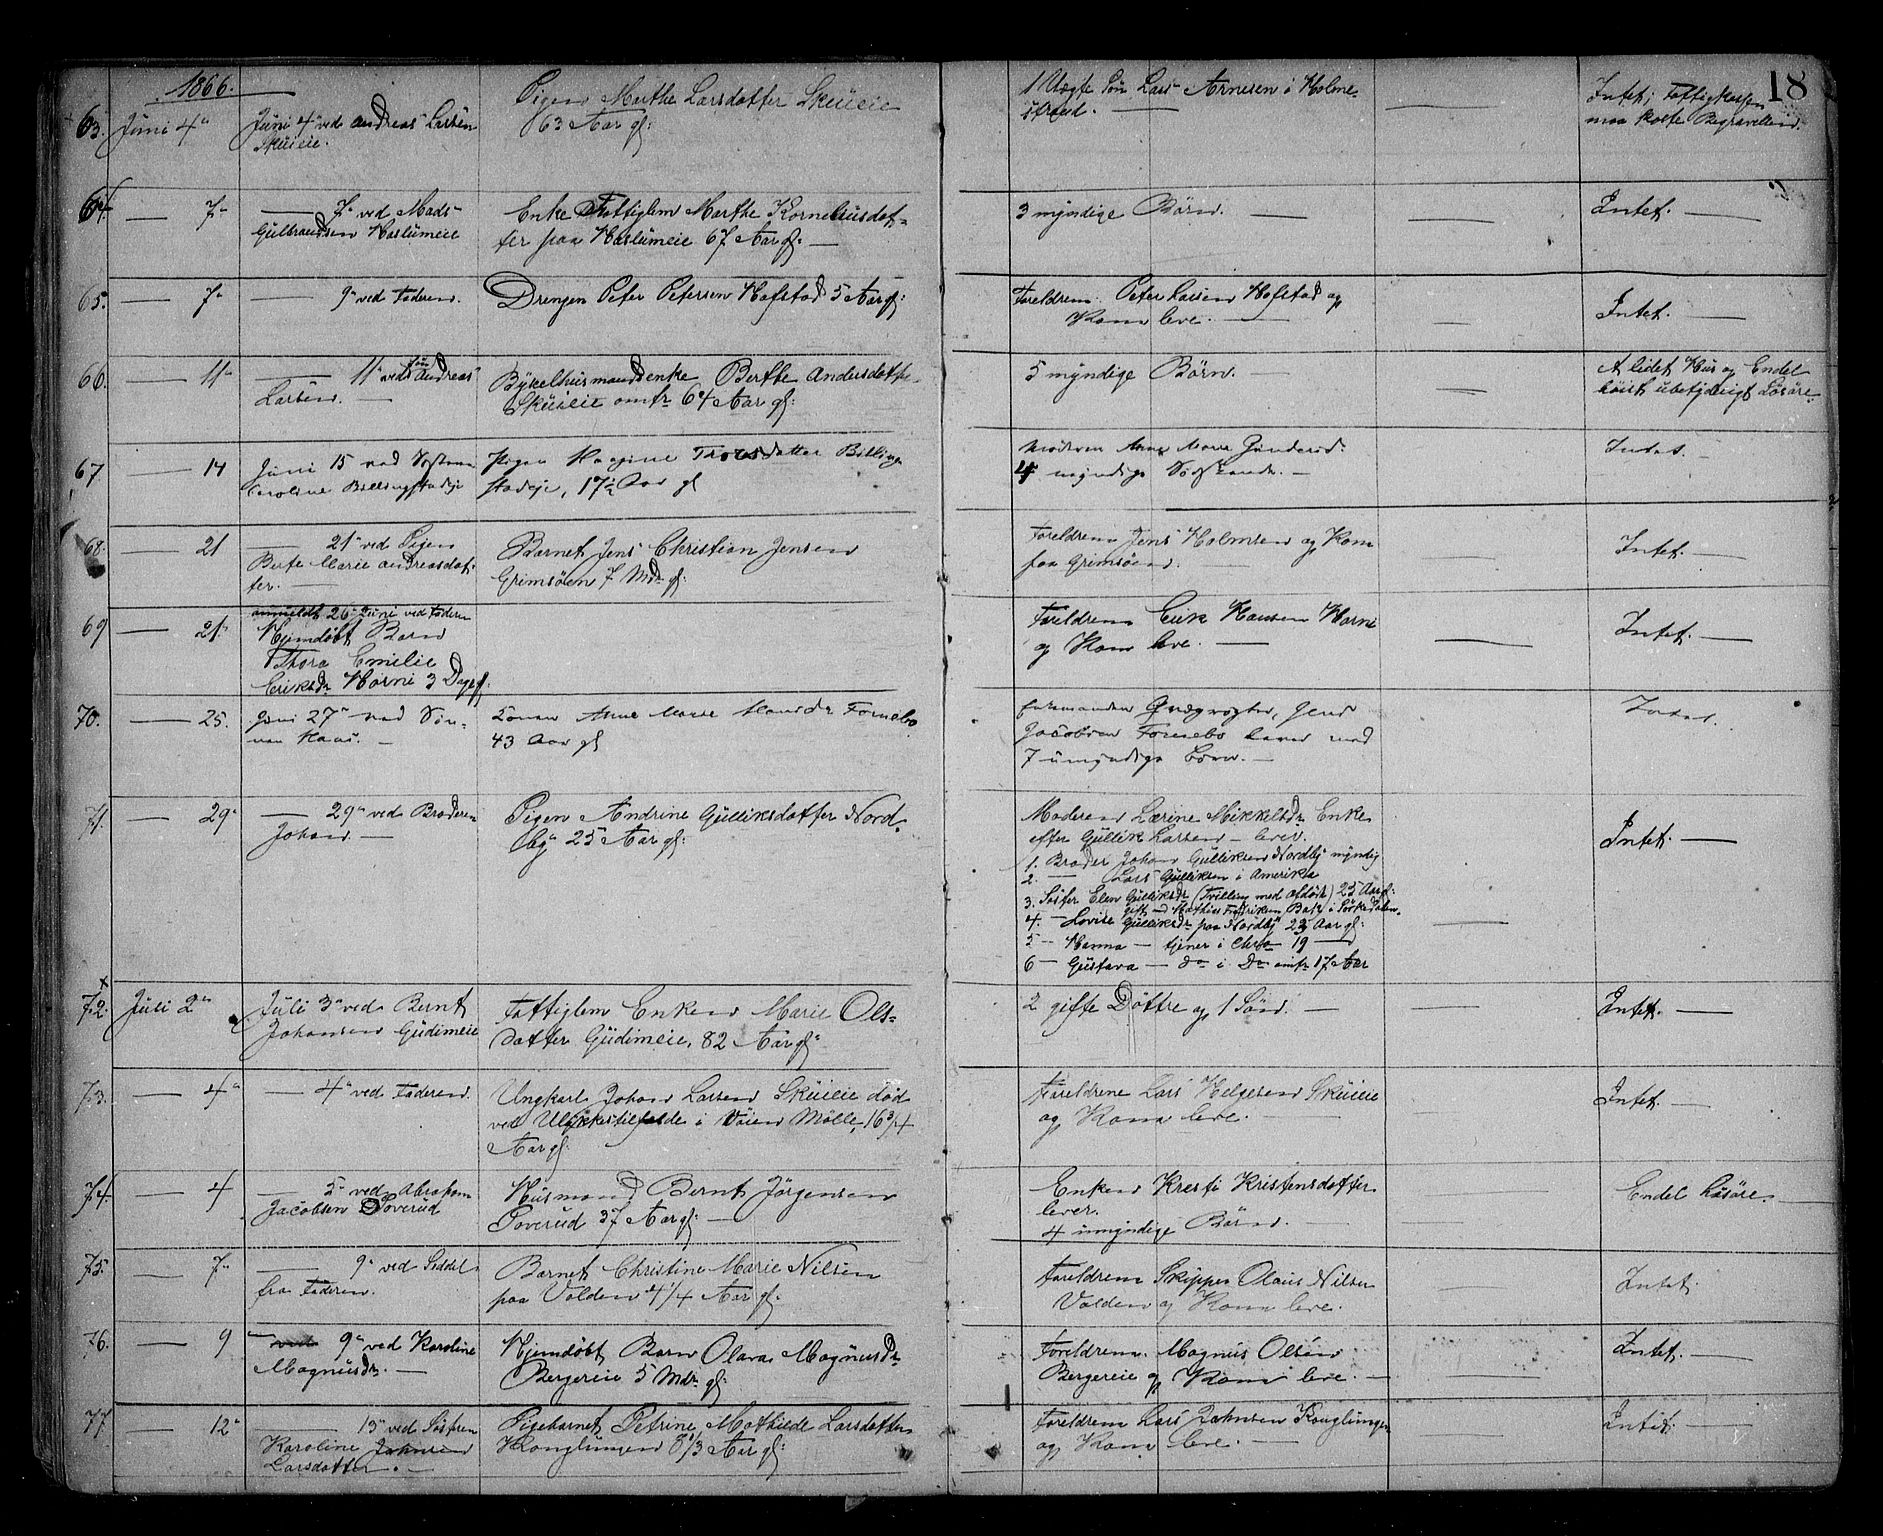 18
1866.
63. Juni 4 Juni 4 ved Andreas Larsen
Skuieie.
Pigen Marthe Larsdatter Skuieie
63 Aar gl:
1 Uægte Søn Lars Arnesen i Holme-
strand. —
Intet; Fattigkassen
maa koste Begravelsen.
64. — 7 — 7 ved Mads
Gulbrandsen Haslumeie
Enke Fattiglem Marthe Korneliusdat-
ter paa Haslumeie 67 Aar gl: —
3 myndige Børn. —
Intet. —
65. — 7 — 9 ved Faderen.
Drengen Peter Petersen Hofstad 5 Aar gl:
Foreldrene Peter Larsen Hofstad og
Kone leve. —
Intet. —
66. — 11 — 11 ved Søn Andreas
Larsen. —
Bykselhusmandsenke Berthe Andersdatter
Skuieie omtr 64 Aar gl:
5 myndige Børn. —
Et lidet Hus og Endel
høist ubetydeligt Løsøre.
67. — 14 Juni 15 ved Søsteren
Caroline Billingstadeje
Pigen Hagine Troelsdatter Billing-
stadeje, 17½ Aar gl
Moderen Anne Marie
4 myndige Sødskende. —
Intet.
68. — 21 — 21 ved Pigen
Berte Marie Andreasdat-
ter. —
Barnet Jens Christian Jensen
Grimsøen 7 Mdr gl:
Foreldrene Jens Holmsen og Kone
paa Grimsøen. —
Intet. —
69 — 21 anmeldt 26 Juni ved Faderen
Hjemdøbt Barn
Thora Emilie
Eriksdr Horni 3 Dage gl:
Foreldrene Erik Hansen Horni
og Kone leve. —
Intet. —
70. — 25. Juni 27 ved Søn-
nen Hans. —
Konen Anne Marie Hansdr Fornebo
43 Aar gl
Jens
Jacobsen Fornebo lever med
7 umyndige Børn. —
Intet.
71. — 29 — 29 ved Broderen
Johan. —
Pigen Andrine Gulliksdatter Nord-
by 25 Aar gl:
Moderen Lærine Mikkelsdr Enke
efter Gullik Larsen — lever.
1. Broder Johan Gulliksen Nordby myndig
2. — Lars Gulliksen i Amerika
3. Søster Elen Gulliksdr (Tvilling med afdøde) 25 Aar gl:
gift med Mathias Fredriksen Bak i Sørkedalen.
4. — Lovise Gulliksdr paa Nordby 23 Aar gl:
5 — Hanna — tjener i Chra 19 —
6 — Gustava — do i Do omtr 17 Aar
Intet. —
72. Juli 2 Juli 3 ved Bernt
Johansen Gudimeie
Fattiglem Enken Marie Ols-
datter Gudimeie, 82 Aar gl:
2 gifte Døttre og 1 Søn. —
Intet. —
73. — 4 — 4 ved Faderen
Ungkarl Johan Larsen Skuieie død
ved Ulykkestilfælde i Vøien Mølle, 16 3/4
Aar gl:
Foreldrene Lars Helgesen Skuieie
og Kone leve. —
Intet. —
74. — 4 — 5 ved Abraham
Jacobsen Poverud
Husmand Bernt Jørgensen
Poverud 37 Aar gl: —
Enken Kresti Kristensdatter
lever.
4 umyndige Børn. —
Endel Løsøre.
75. — 7 — 9 ved Seddel
fra Faderen.
Barnet Christine Marie Nilsen
paa Volden 4 1/4 Aar gl:
Foreldrene Skipper Olaus Nilsen
Volden og Kone leve.
Intet
76. — 9 — ved 9 ved Karoline
Magnusdr. —
Hjemdøbt Barn Olava Magnusdr
Bergereie 5 Mdr gl:
Foreldrene Magnus Olsen
Bergereie og Kone leve. —
Intet. —
77 — 12 — 13 ved Søstren
Karoline Johnsen
Larsdatter. —
Pigebarnet Petrine Mathilde Larsdatter
Konglungen 8 1/3 Aar gl:
Foreldrene Lars Johnsen Konglungen
og Kone leve. —
Intet. —